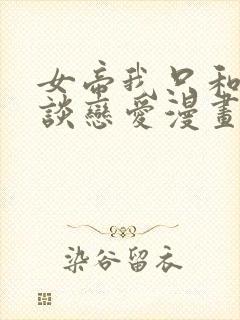 女帝我只和
談戀愛漫畫
染谷留衣